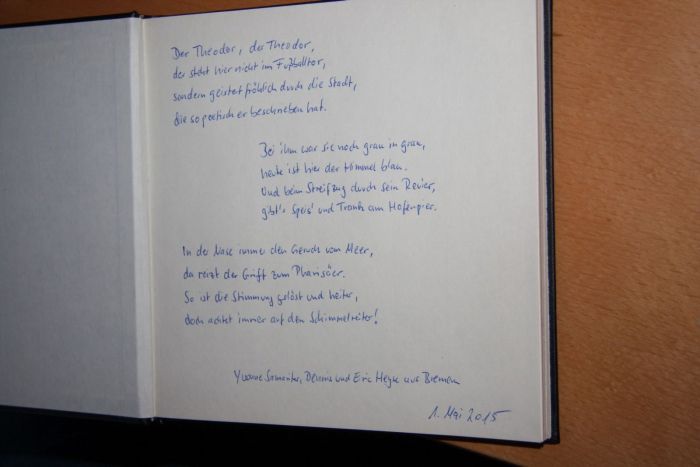 Der Theodor, der Theodor,
der steht hier nicht im Fußballtor,
sondern geistet fröhlich durch die Stadt,
die so poetisch er beschrieben hat.
Bei ihm war sie noch grau in grau,
heute ist hier der Himmel blau.
Und beim Streifzug durch sein Revier,
gibt's Speis' und Trank am Hafenpier.
In der Nase immer den Geruch vom Meer,
da reizt der Griff zum Pharisäer.
So ist die Stimmung gelöst und heiter,
doch achtet immer auf den Schimmelreiter!
Yvonne Samantha, Dennis und Eric Heyse aus Bremen
1. Mai 2015